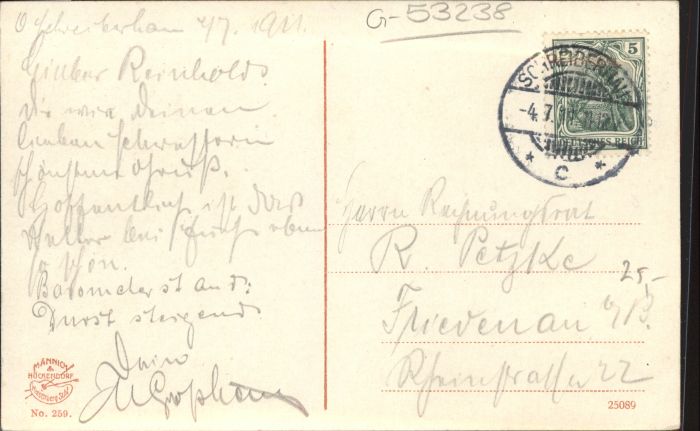 G-53238
Schreiberhau 4/7. 1911.
Lieber Reinhold.
Dir wie Deinen
lieben Schwestern
schönsten Gruß.
Hoffentlich ist das
Wetter bei Euch eben
so schön.
Barometerstand:
Durst steigend
Dein
5
SCHREIBERHAU
-4.7.11
DEUTSCHES REICH
* C *
Herrn Rechnungsrat
R. Petzke
25,-
Friedenau b/B.
Rheinstrasse 22
MÄNNICH
&
HÖCKENDORF
No. 259.
25089